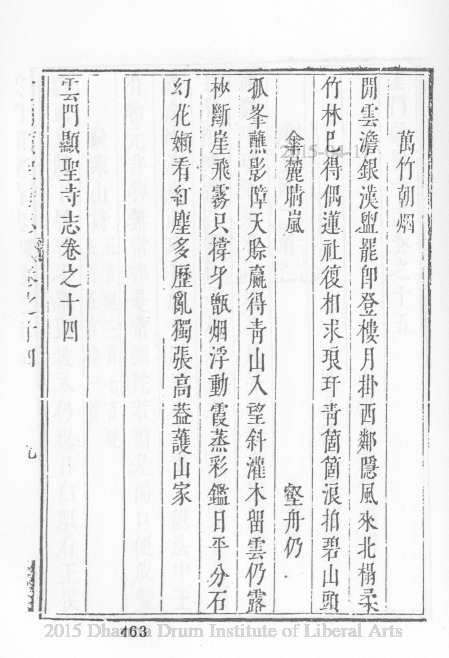 萬竹朝烟
閒雲澹銀漢盥罷即登樓月掛西鄰隱風來北榻柔
竹林已得偶蓮社復相求琅玕青箇箇浪拍碧山頭
麓晴嵐
壑舟仍
孤峯蘸影障天賒贏得青山入望斜灌木留雲仍露
斷崖飛霧只撐牙甑烟浮動霞蒸彩鑑日平分石
幻花嬾看紅塵多歷亂獨張高蓋護山家
雲門顯聖寺志卷之十四
九
463
2015 Dharma Drum Institute of Liberal Arts